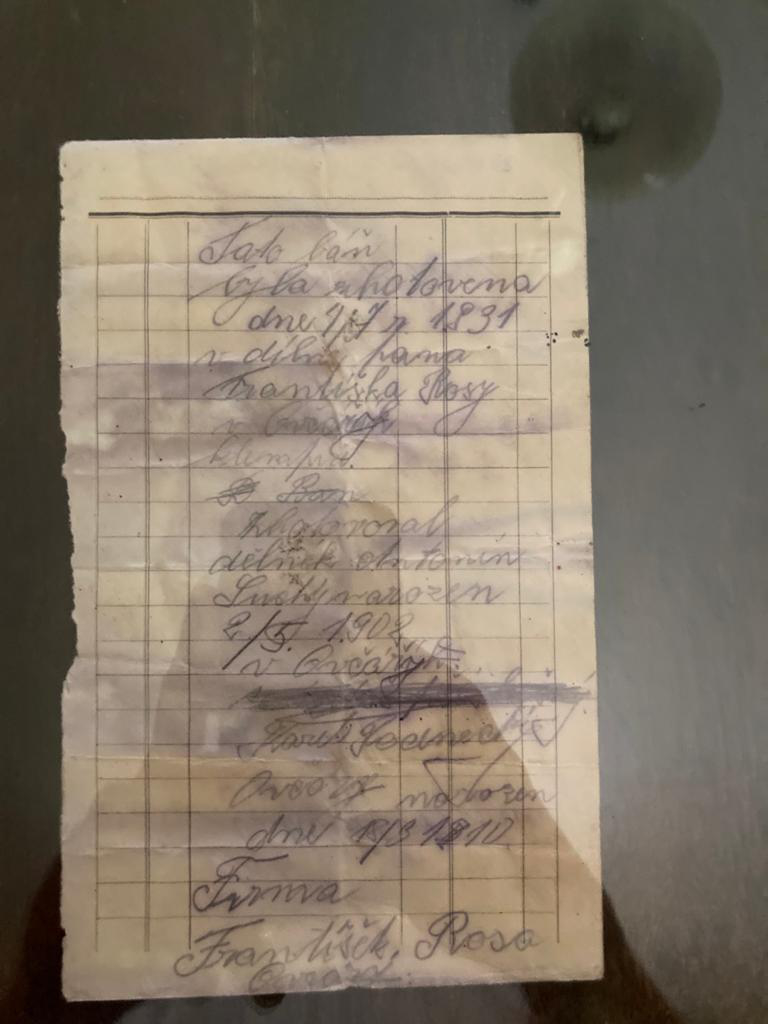 Tato báň
byla zhotovena
dne 1/7 r 1931
v dílně pana
Františka Rosy
v Ovčárý
klempíř.
Báň
Zhotovoval
dělník Antonín
Suchý narozen
2/5. 1902
v Ovčárý
Karel
Ovčárý narozen
dne 18/3 1910
Firma
František Rosa
Ovčárý.